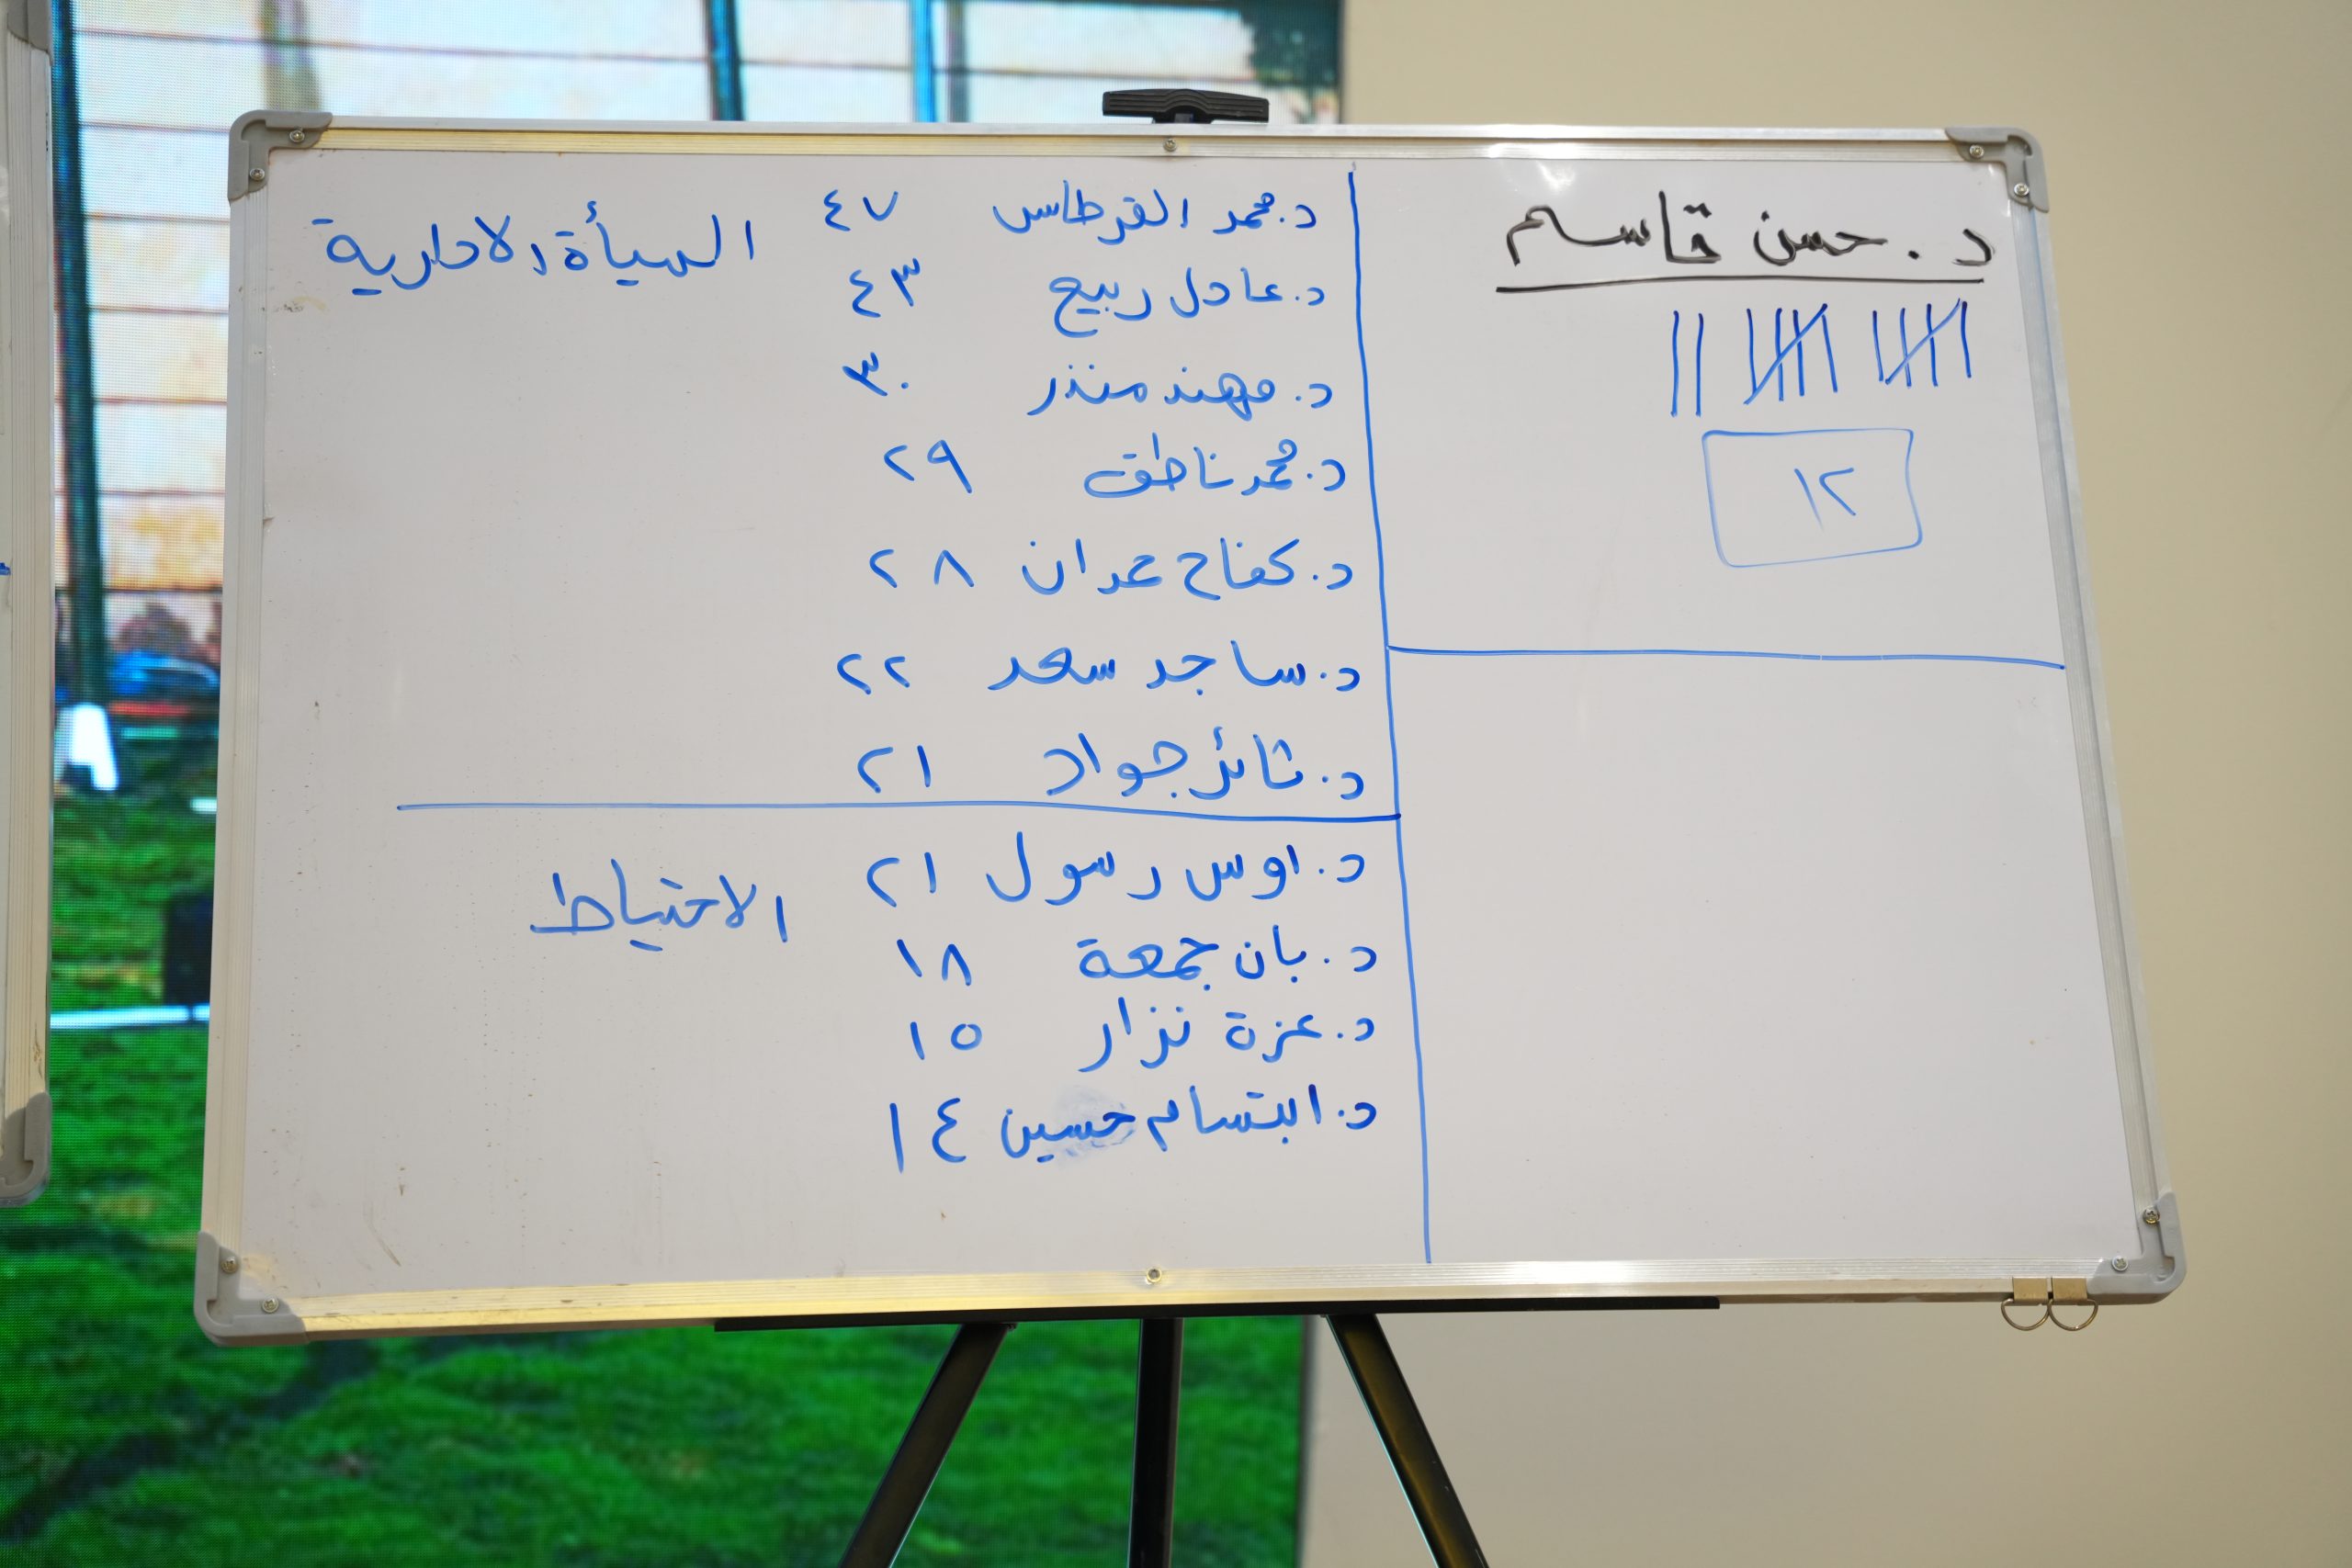 د. حسن قاسم
١٢
د. محمد القرطاس ٤٧
الهيأة الادارية
د. عادل ربيع ٤٣
د. مهند منذر ٣٠
د. محمد ناطق ٢٩
د. كفاح عدان ٢٨
د. ساجد سعد ٢٢
د. ثائر جواد ٢١
د. اوس رسول ٢١
الاحتياط
د. بان جمعة ١٨
د. عزة نزار ١٥
د. ابتسام حسين ١٤